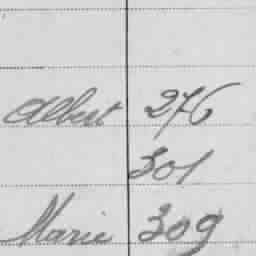 Albert 276
301
Marie 309